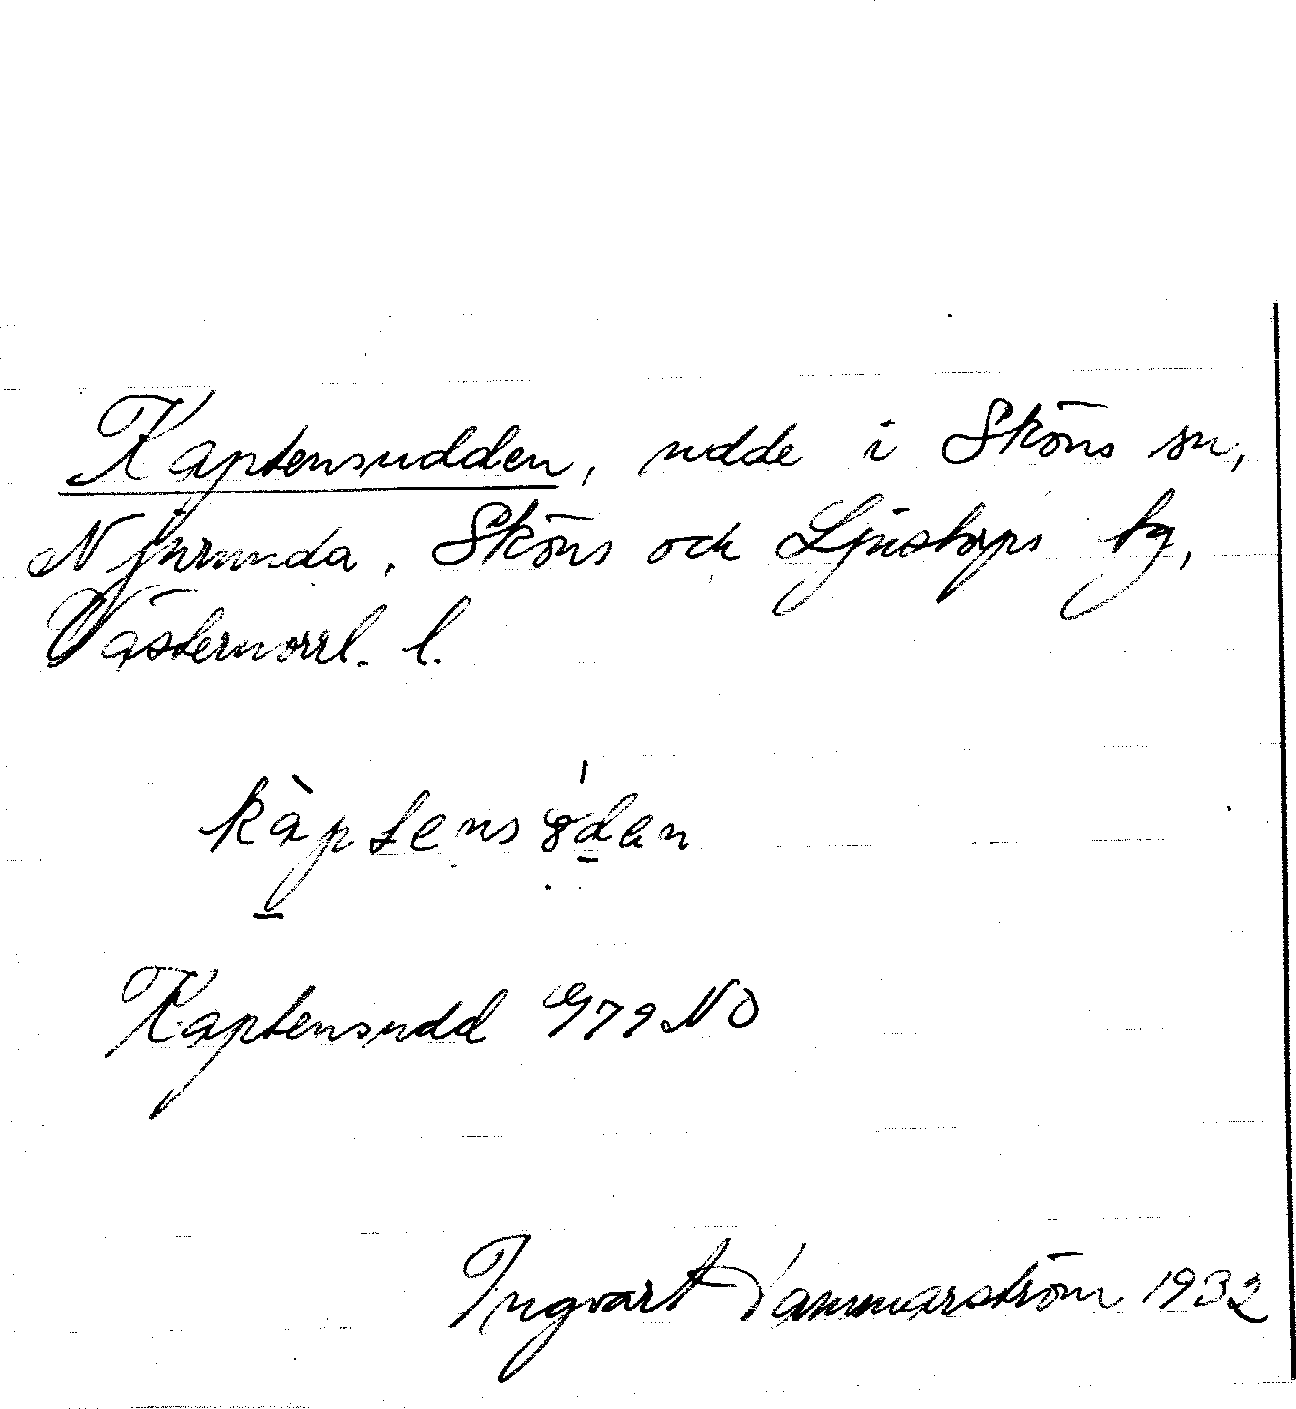 Kaptensudden, udde i Sköns sn,
Njurunda, Sköns och Ljustorps tg,
Västernorrl. l.
Kaptensudd G79NO
Ingvart Hammarström 1932